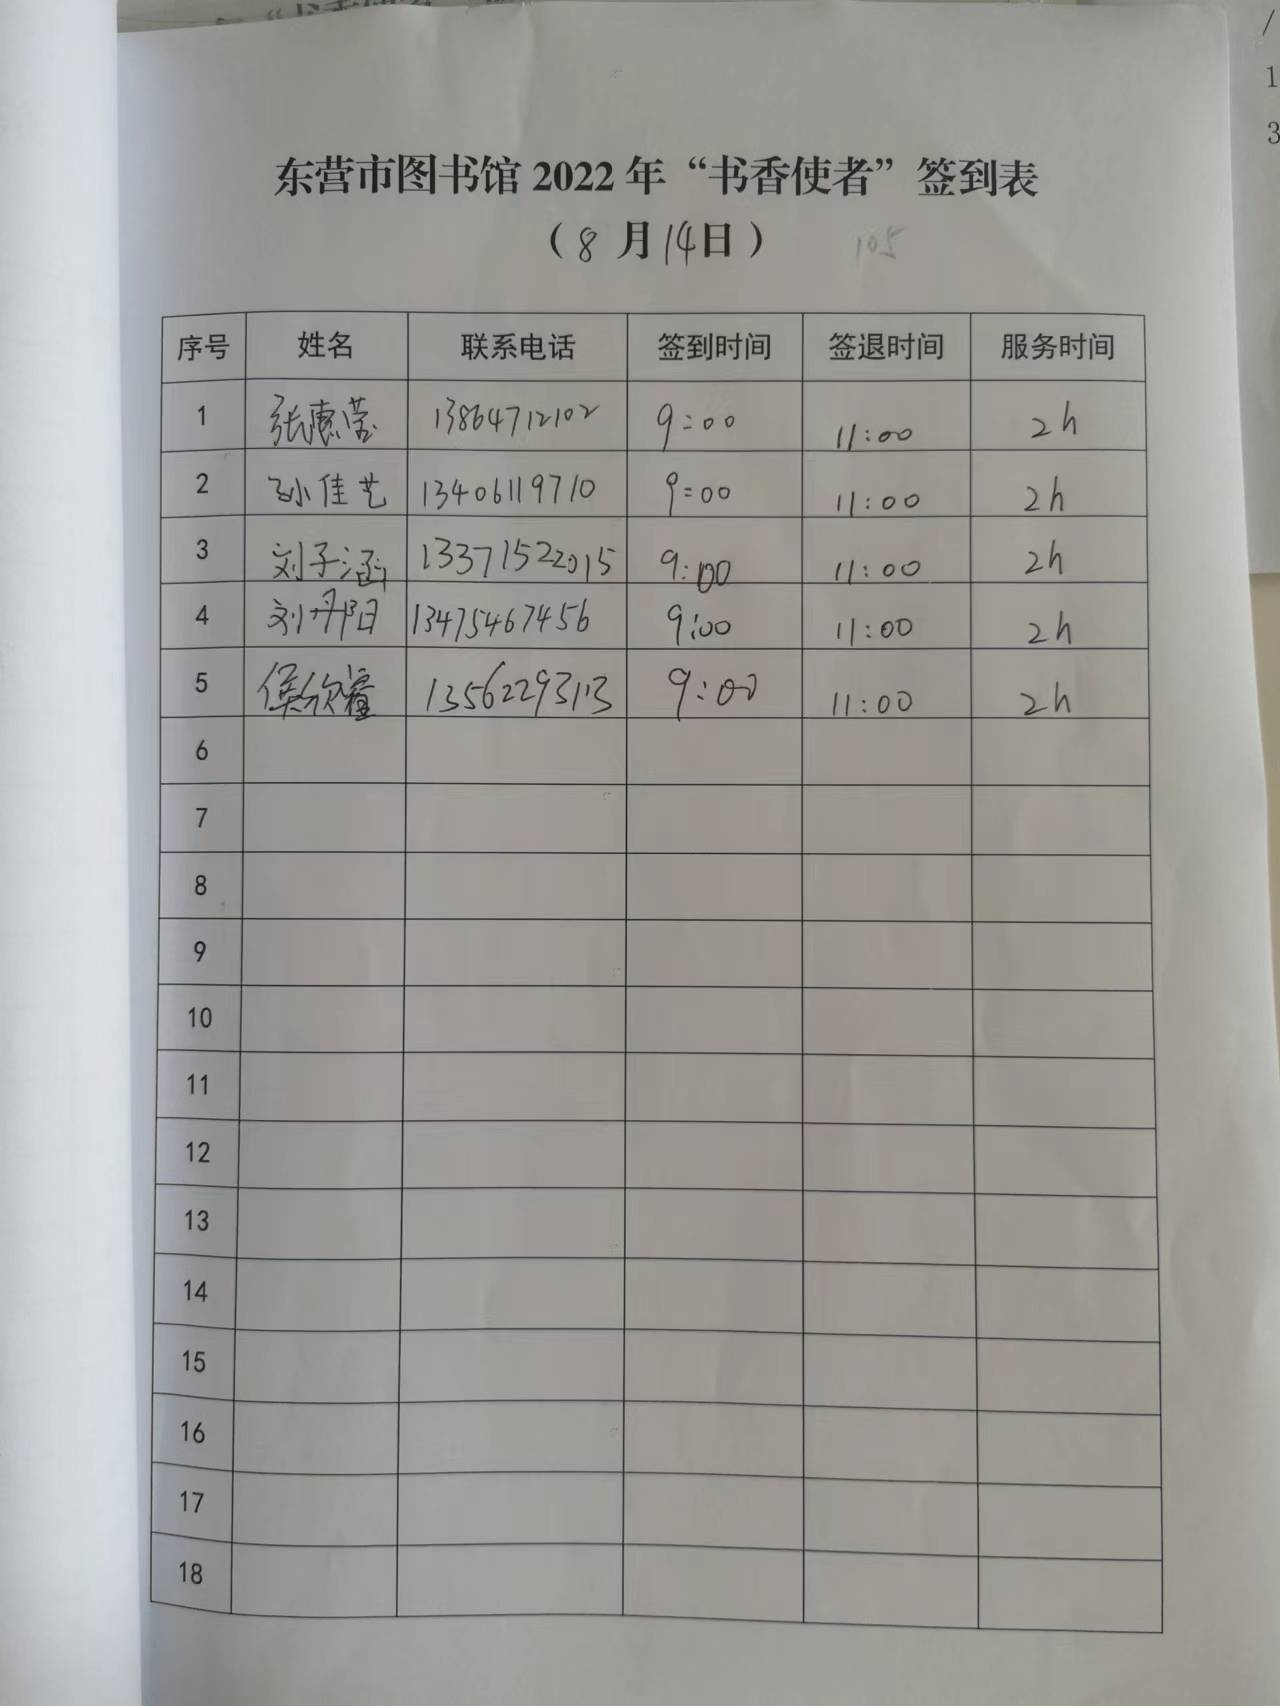 东营市图书馆 2022 年 “书香使者” 签到表
（8 月 14日）
105
序号 姓名 联系电话 签到时间 签退时间 服务时间
1 张惠莹 13864712102 9:00 11:00 2h
2 孙佳艺 13406119710 9:00 11:00 2h
3 刘子涵 13371522015 9:00 11:00 2h
4 刘丹阳 13475467456 9:00 11:00 2h
5 侯欣 13562293113 9:00 11:00 2h
6
7
8
9
10
11
12
13
14
15
16
17
18
1
3